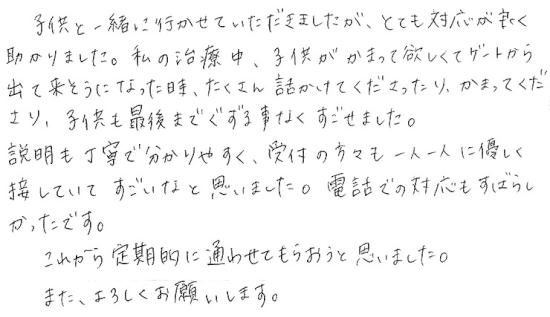 子供と一緒に行かせていただきましたが、とても対応が良く
助かりました。私の治療中、子供がかまって欲しくてゲートから
出て来そうになった時、たくさん話かけてくださったり、かまってくだ
さり、子供も最後までぐずる事なくすごせました。
説明も丁寧で分かりやすく、受付の方々も一人一人に優しく
接していてすごいなと思いました。電話での対応もすばらし
かったです。
これから定期的に通わせてもらおうと思いました。
また、よろしくお願いします。